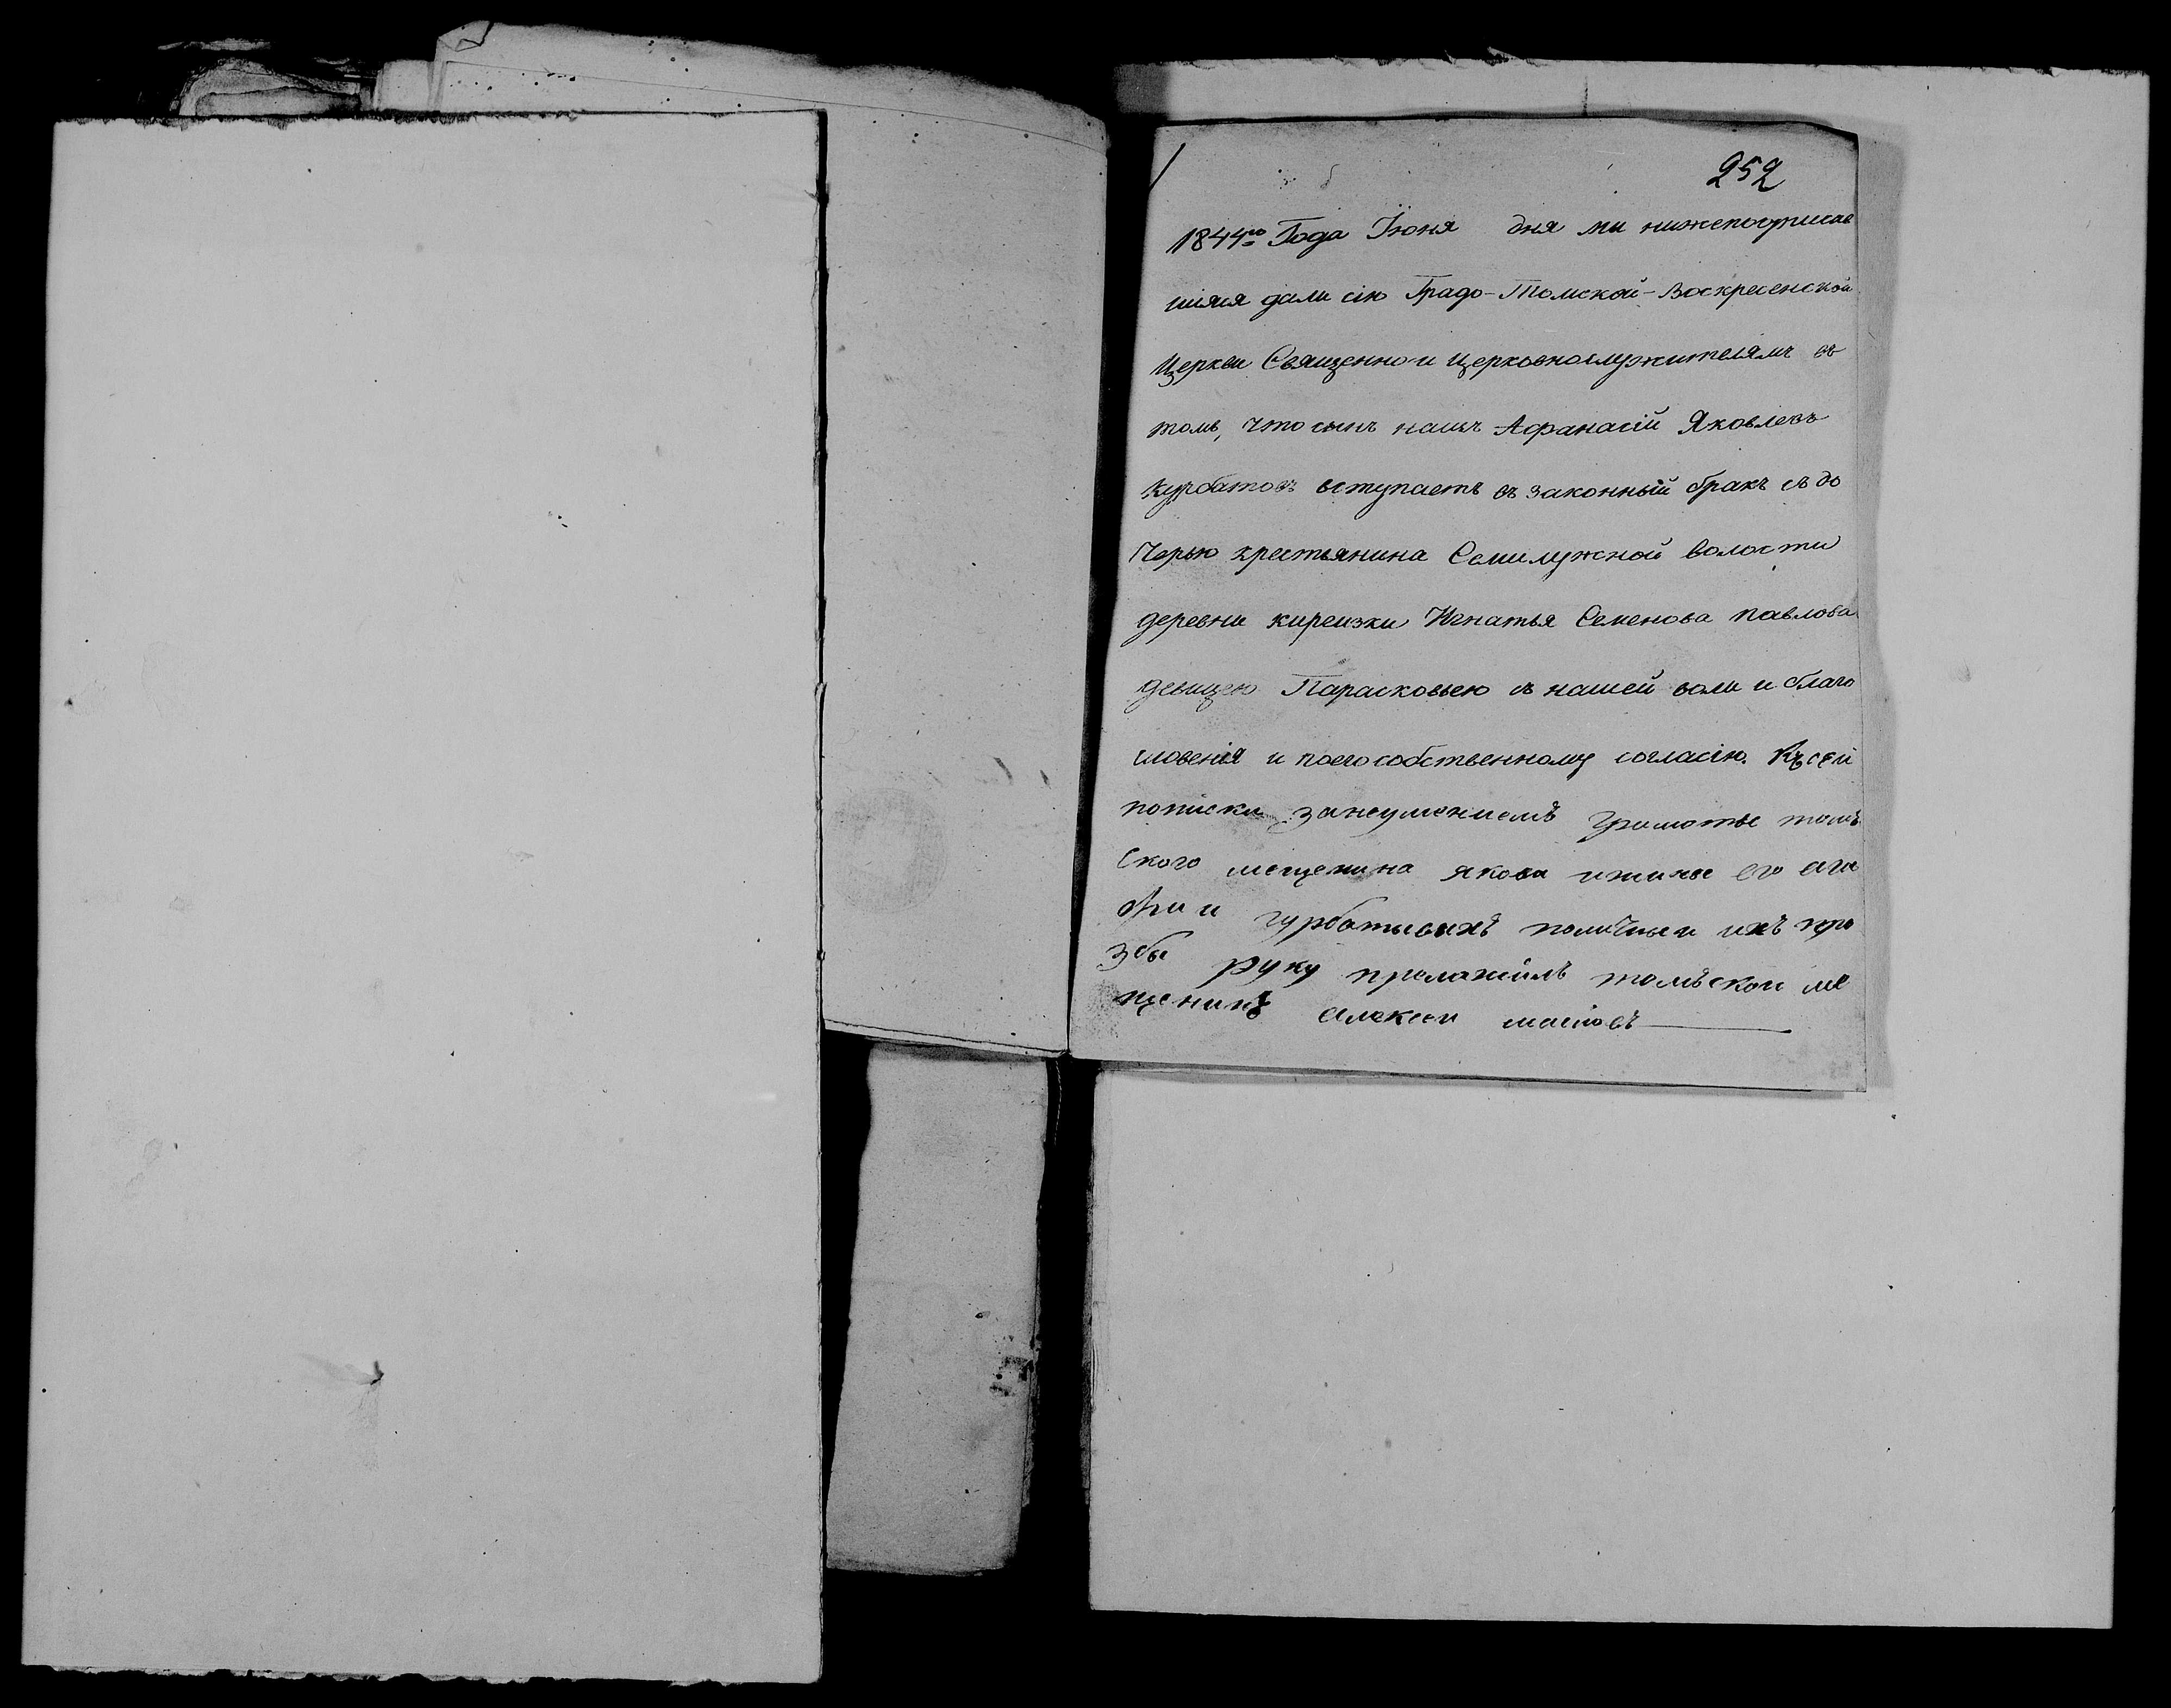 252
1844го Года Іюня дня мы нижеподписав
шіяся дали сію Градо-Томской-Воскресенской
Церкви Священно и Церковнослужителямъ въ
томъ, что сынъ нашъ Афанасій Яковлевъ
Курбатовъ вступаетъ въ законный бракъ съ до
черью крестьянина Семилужной волости
деревни киреизки Игнатья Семенова Павлова
девицею Парасковьею съ нашей воли и благо
словенія и по его собственному согласію. Къ сей
потиски занеуменіемъ грамотые томъ
ского мещенина якова ижины его ага
фи и курбатывихъ поличнеи ихъ про
збы руку приложилъ томъской ме
щенинъ алексеи